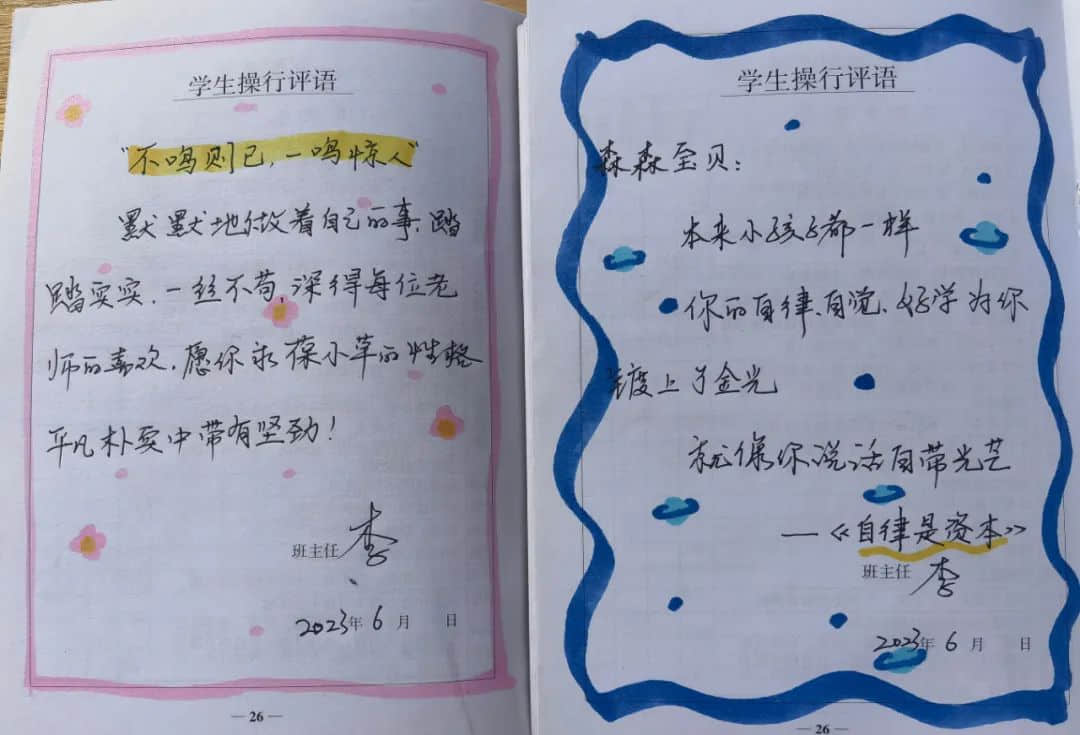 学生操行评语
"不鸣则已,一鸣惊人"
默默地做着自己的事,踏
踏实实,一丝不苟,深得每位老
师的喜欢,愿你永葆小草的性格
平凡朴实中带有坚韧!
班主任 李
2023年 6 月 日
— 26 —
学生操行评语
森森宝贝:
本来小孩子都一样
你的自律、自觉、好学为你
镀上了金光
就像你说话自带光芒
—《自律是资本》
班主任 李
2023年 6 月 日
— 26 —